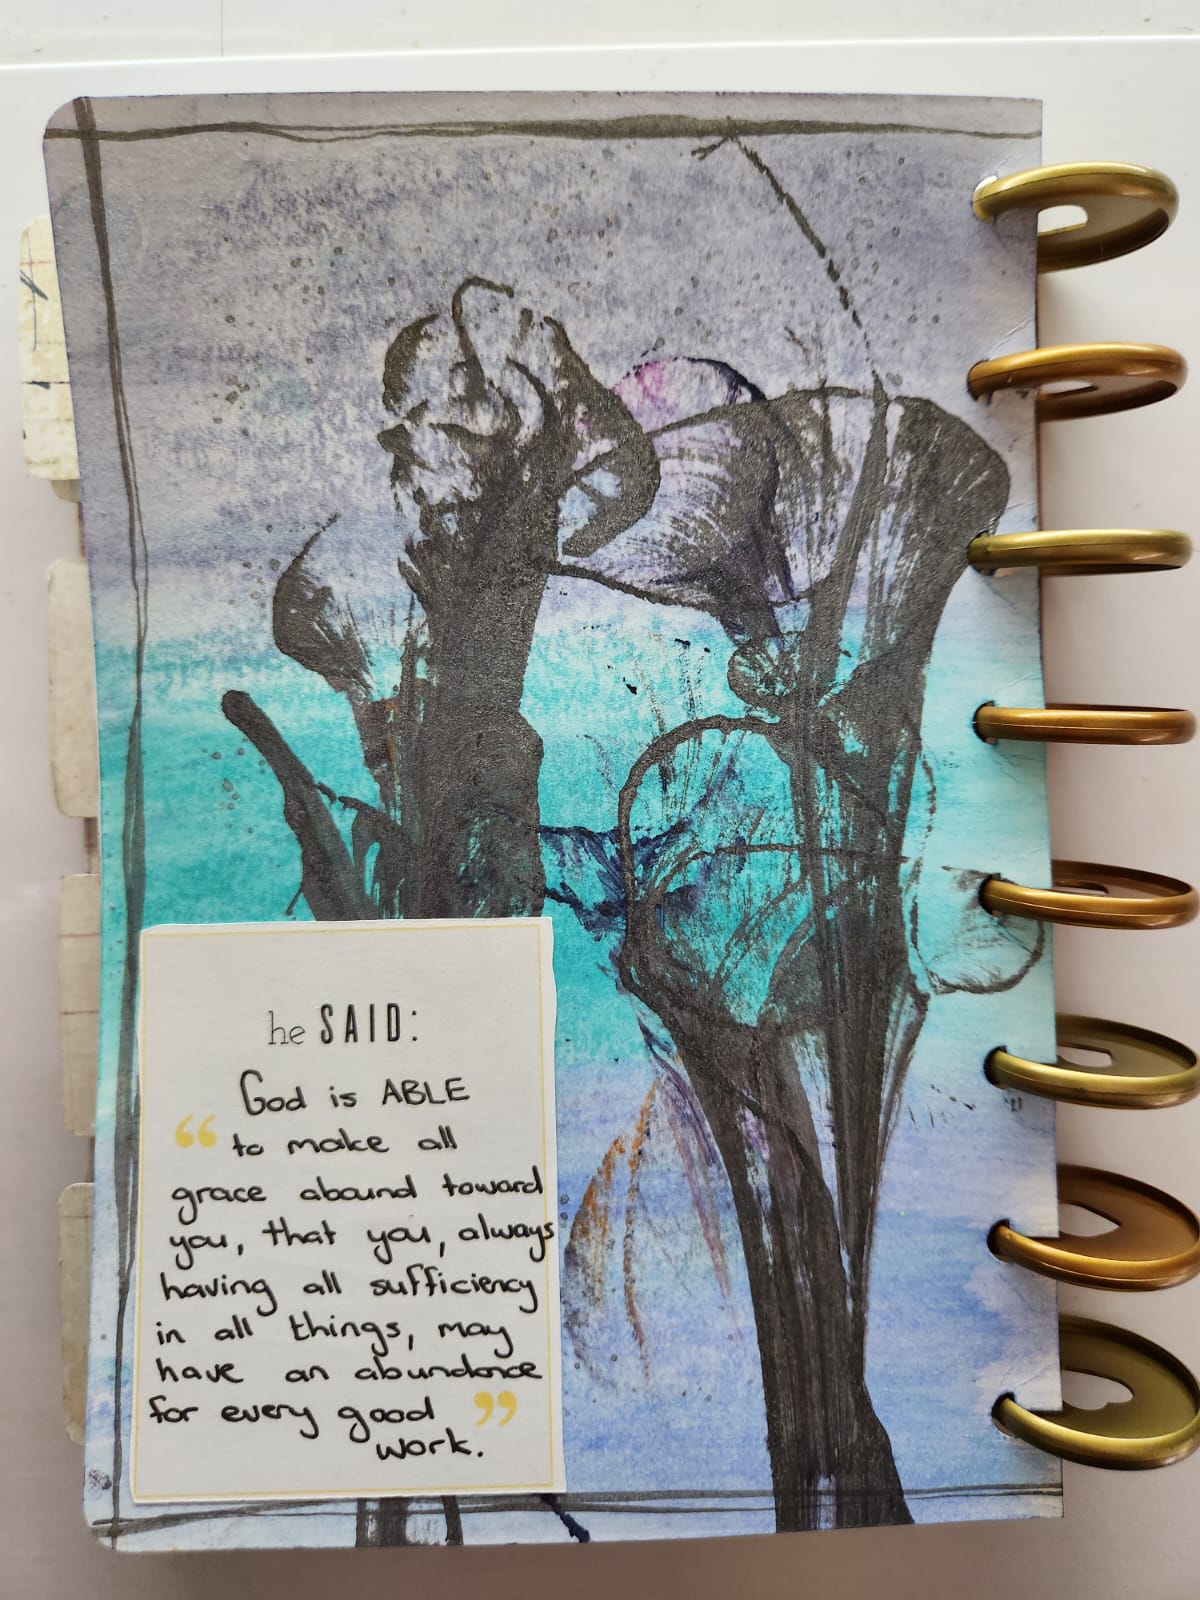 he SAID:
God is ABLE
“ to make all
grace abound toward
you, that you, always
having all sufficiency
in all things, may
have an abundance
for every good ”
work.